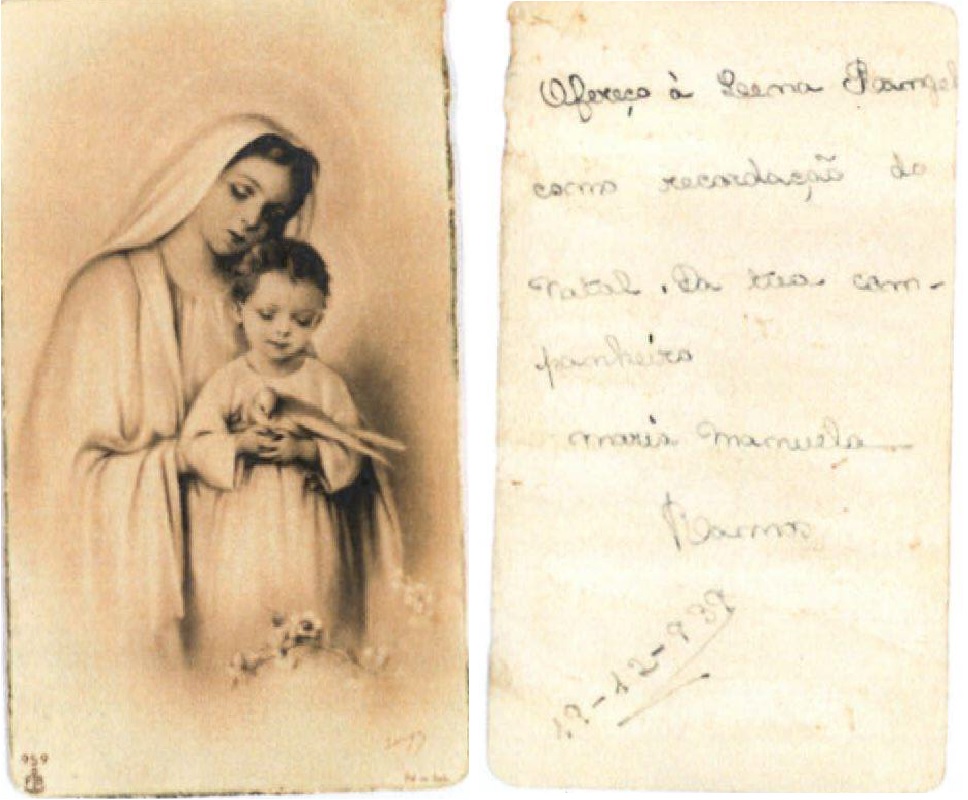 959
Ofereço à Leena Rangel
como recordação do
Natal. Da tua com-
panheira
Maria Manuela
Ramos
19-12-939